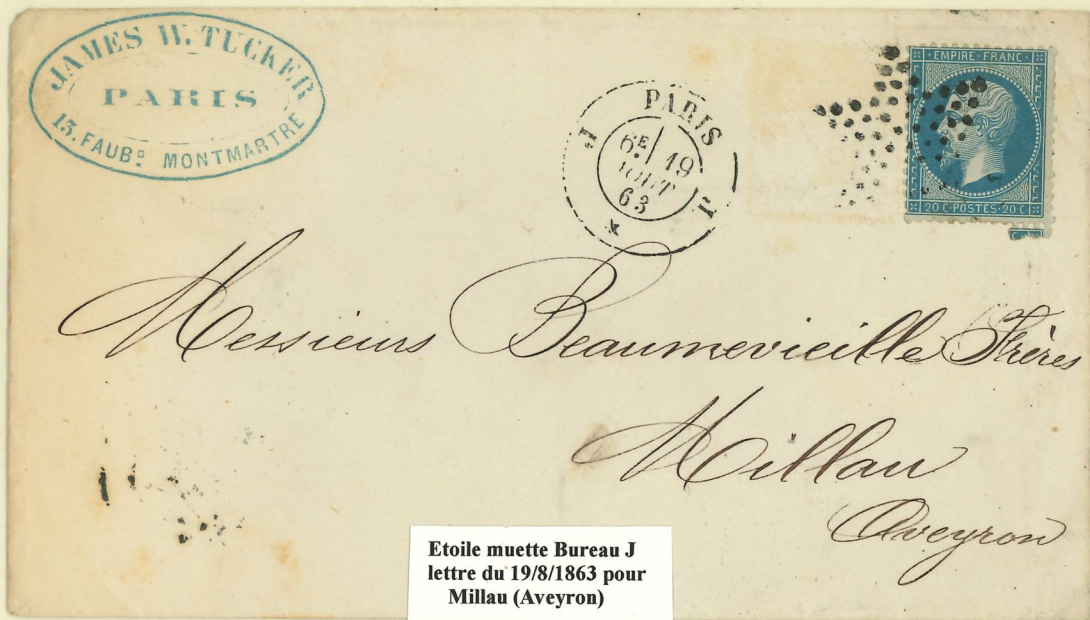 JAMES W. TUCKER
PARIS
13. FAUBG MONTMARTRE
PARIS
6E 19
AOUT
63
J
EMPIRE FRANC
20 C POSTES 20 C
Messieurs Beaumevieille Frères
Millau
Aveyron
Etoile muette Bureau J
lettre du 19/8/1863 pour
Millau (Aveyron)